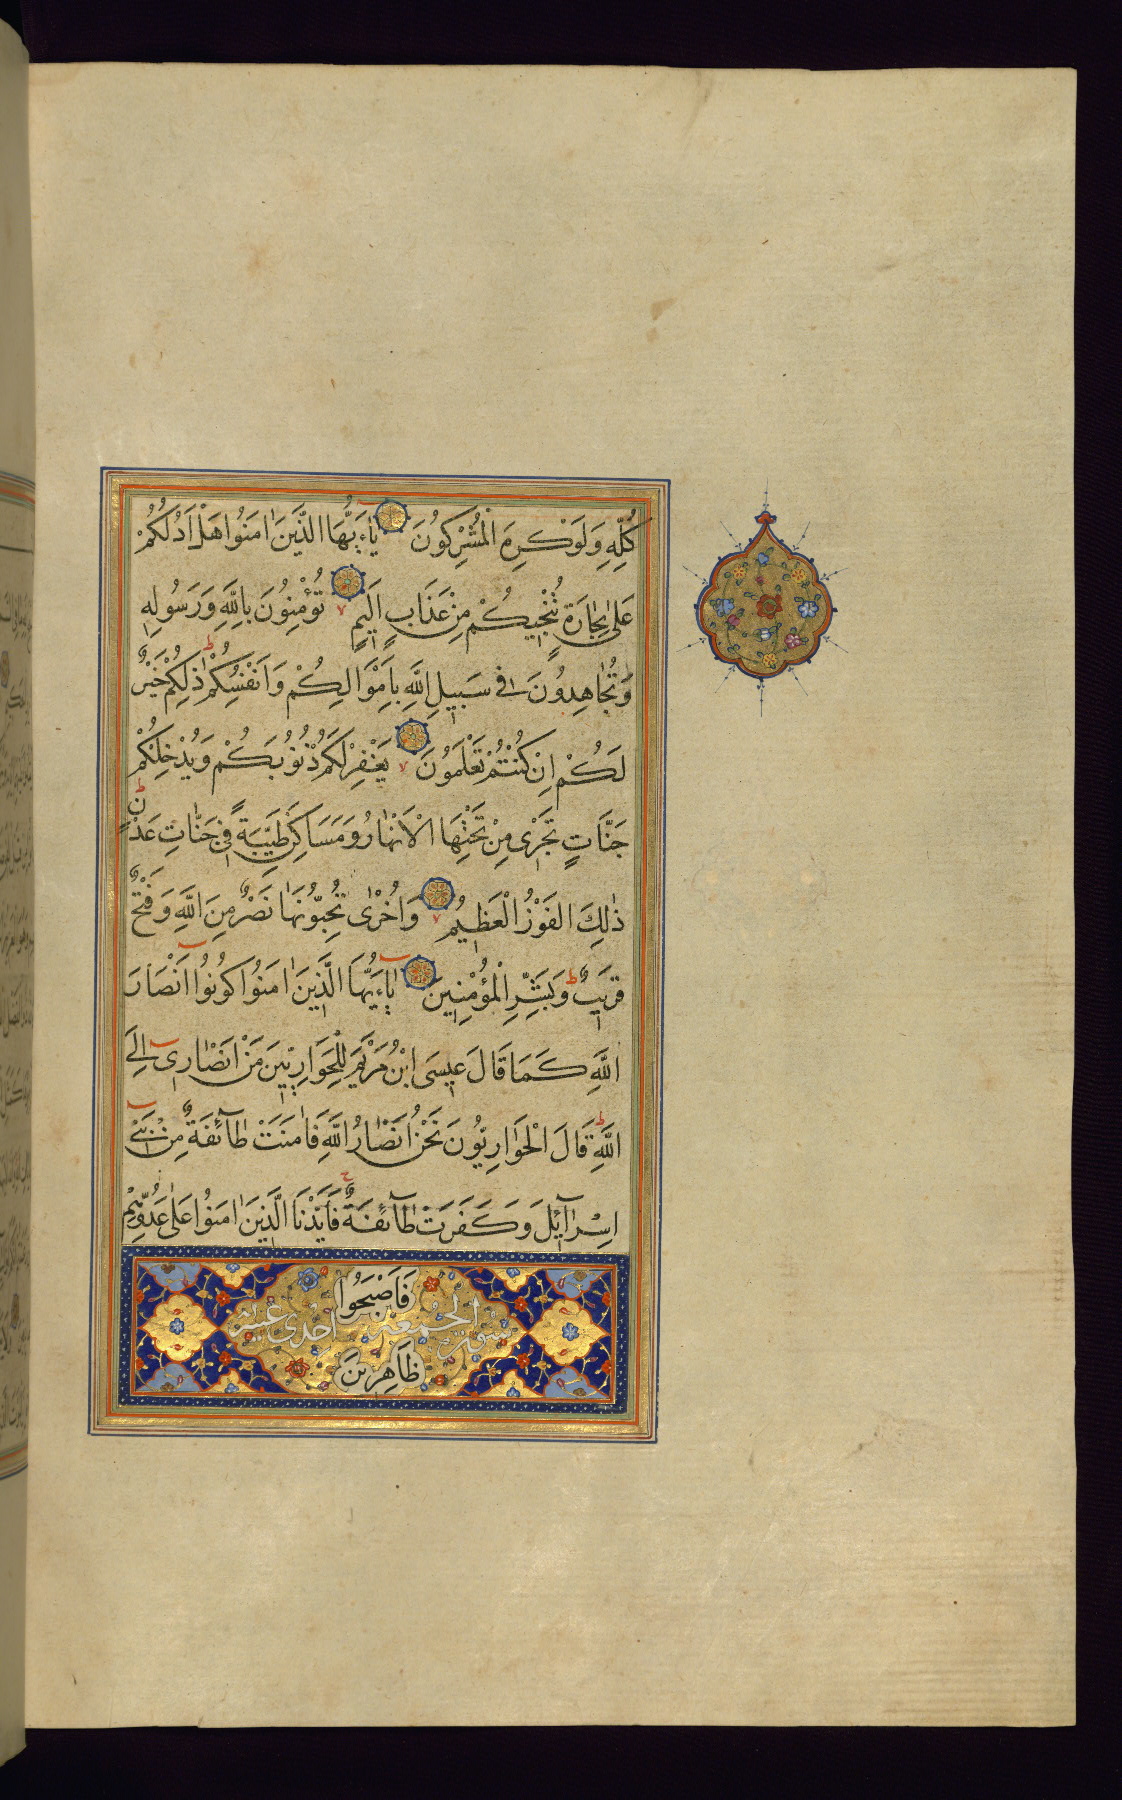 كُلِّهِ وَلَوْ كَرِهَ الْمُشْرِكُونَ يَاءَيُّهَا الَّذِينَ اٰمَنُوا هَلْ اَدُلُّكُمْ
عَلٰى تِجَارَةٍ تُنْجِيكُمْ مِنْ عَذَابٍ اَلِيمٍ تُؤْمِنُونَ بِاللّٰهِ وَرَسُولِهِ
وَتُجَاهِدُونَ فِي سَبِيلِ اللّٰهِ بِاَمْوَالِكُمْ وَاَنْفُسِكُمْ ذٰلِكُمْ خَيْرٌ
لَكُمْ اِنْ كُنْتُمْ تَعْلَمُونَ يَغْفِرْ لَكُمْ ذُنُوبَكُمْ وَيُدْخِلْكُمْ
جَنَّاتٍ تَجْرِي مِنْ تَحْتِهَا الْاَنْهَارُ وَمَسَاكِنَ طَيِّبَةً فِي جَنَّاتِ عَدْنٍ
ذٰلِكَ الْفَوْزُ الْعَظِيمُ وَاُخْرٰى تُحِبُّونَهَا نَصْرٌ مِنَ اللّٰهِ وَفَتْحٌ
قَرِيبٌ وَبَشِّرِ الْمُؤْمِنِينَ يَاءَيُّهَا الَّذِينَ اٰمَنُوا كُونُوا اَنْصَارَ
اللّٰهِ كَمَا قَالَ عِيسَى ابْنُ مَرْيَمَ لِلْحَوَارِيِّينَ مَنْ اَنْصَارِي اِلَى
اللّٰهِ قَالَ الْحَوَارِيُّونَ نَحْنُ اَنْصَارُ اللّٰهِ فَاٰمَنَتْ طَآئِفَةٌ مِنْ بَنِي
اِسْرَآئِلَ وَكَفَرَتْ طَآئِفَةٌ فَاَيَّدْنَا الَّذِينَ اٰمَنُوا عَلٰى عَدُوِّهِمْ
فَاَصْبَحُوا
سورة الجمعة احدى عشر
ظَاهِرِينَ